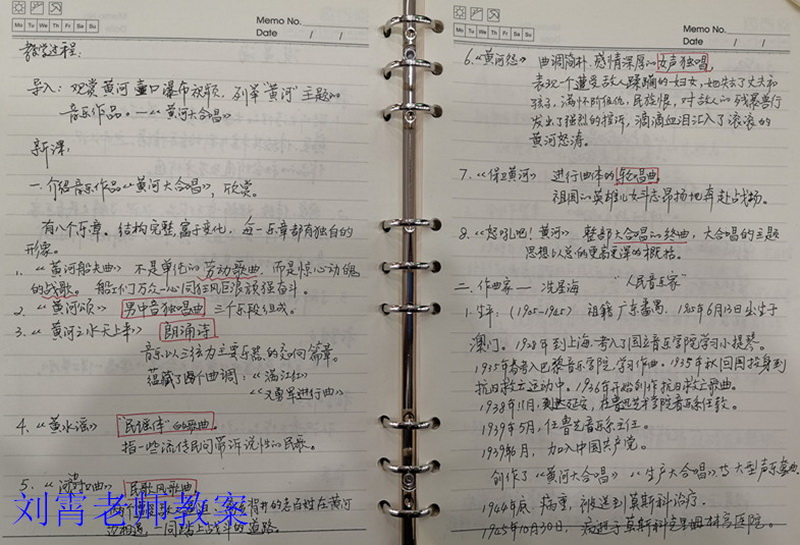 Memo No.
Mo Tu We Th Fr Sa Su
Date / /
教学过程:
导入: 观赏黄河壶口瀑布视频, 列举"黄河"主题的
音乐作品。—《黄河大合唱》
新课:
一.介绍音乐作品《黄河大合唱》, 欣赏。
有八个乐章。结构完整,富于变化, 每一乐章都有独自的
形象。
1. 《黄河船夫曲》 不是单纯的劳动歌曲, 而是惊心动魄
的战歌。 船工们万众一心同狂风巨浪顽强奋斗。
2. 《黄河颂》 男中音独唱曲 三个乐段组成。
3. 《黄河之水天上来》 朗诵诗
音乐以三弦为主要乐器的交响篇章。
蕴藏了两个曲调:《满江红》
《义勇军进行曲》
4. 《黄水谣》 "民谣体"的歌曲。
指一些流传民间带诉说性的民歌。
5. 《河边对口曲》 民歌风歌曲
老百姓在黄河
边相遇, 一同踏上战斗的道路。
刘霄老师教案
Memo No.
Mo Tu We Th Fr Sa Su
Date / /
6.《黄河怨》 曲调简朴.感情深厚的女声独唱,
表现一个遭受敌人蹂躏的妇女,她失去了丈夫和
孩子, 满怀阶级仇, 民族恨, 对敌人的残暴兽行
发出了强烈的控诉, 滴滴血泪汇入了滚滚的
黄河怒涛。
7.《保卫黄河》 进行曲体的轮唱曲。
祖国的英雄儿女斗志昂扬地奔赴战场。
8.《怒吼吧!黄河》 整部大合唱的终曲, 大合唱的主题
思想以总的更高更深的概括。
二.作曲家 — 冼星海 "人民音乐家"
1.生平: (1905-1945) 祖籍广东番禺. 1905年6月13日出生于
澳门。1928年到上海.考入了国立音乐学院学习小提琴。
1935年考入巴黎音乐学院,学习作曲。1935年秋回国投身到
抗日救亡运动中。1936年开始创作抗日救亡歌曲。
1938年11月,到达延安, 在鲁迅艺术学院音乐系任教。
1939年5月,任鲁艺音乐系主任。
1939年6月, 加入中国共产党。
创作了《黄河大合唱》《生产大合唱》等大型声乐套曲
1944年底 病重, 被送到莫斯科治疗.
1945年10月30日, 病逝于莫斯科克里姆林宫医院。